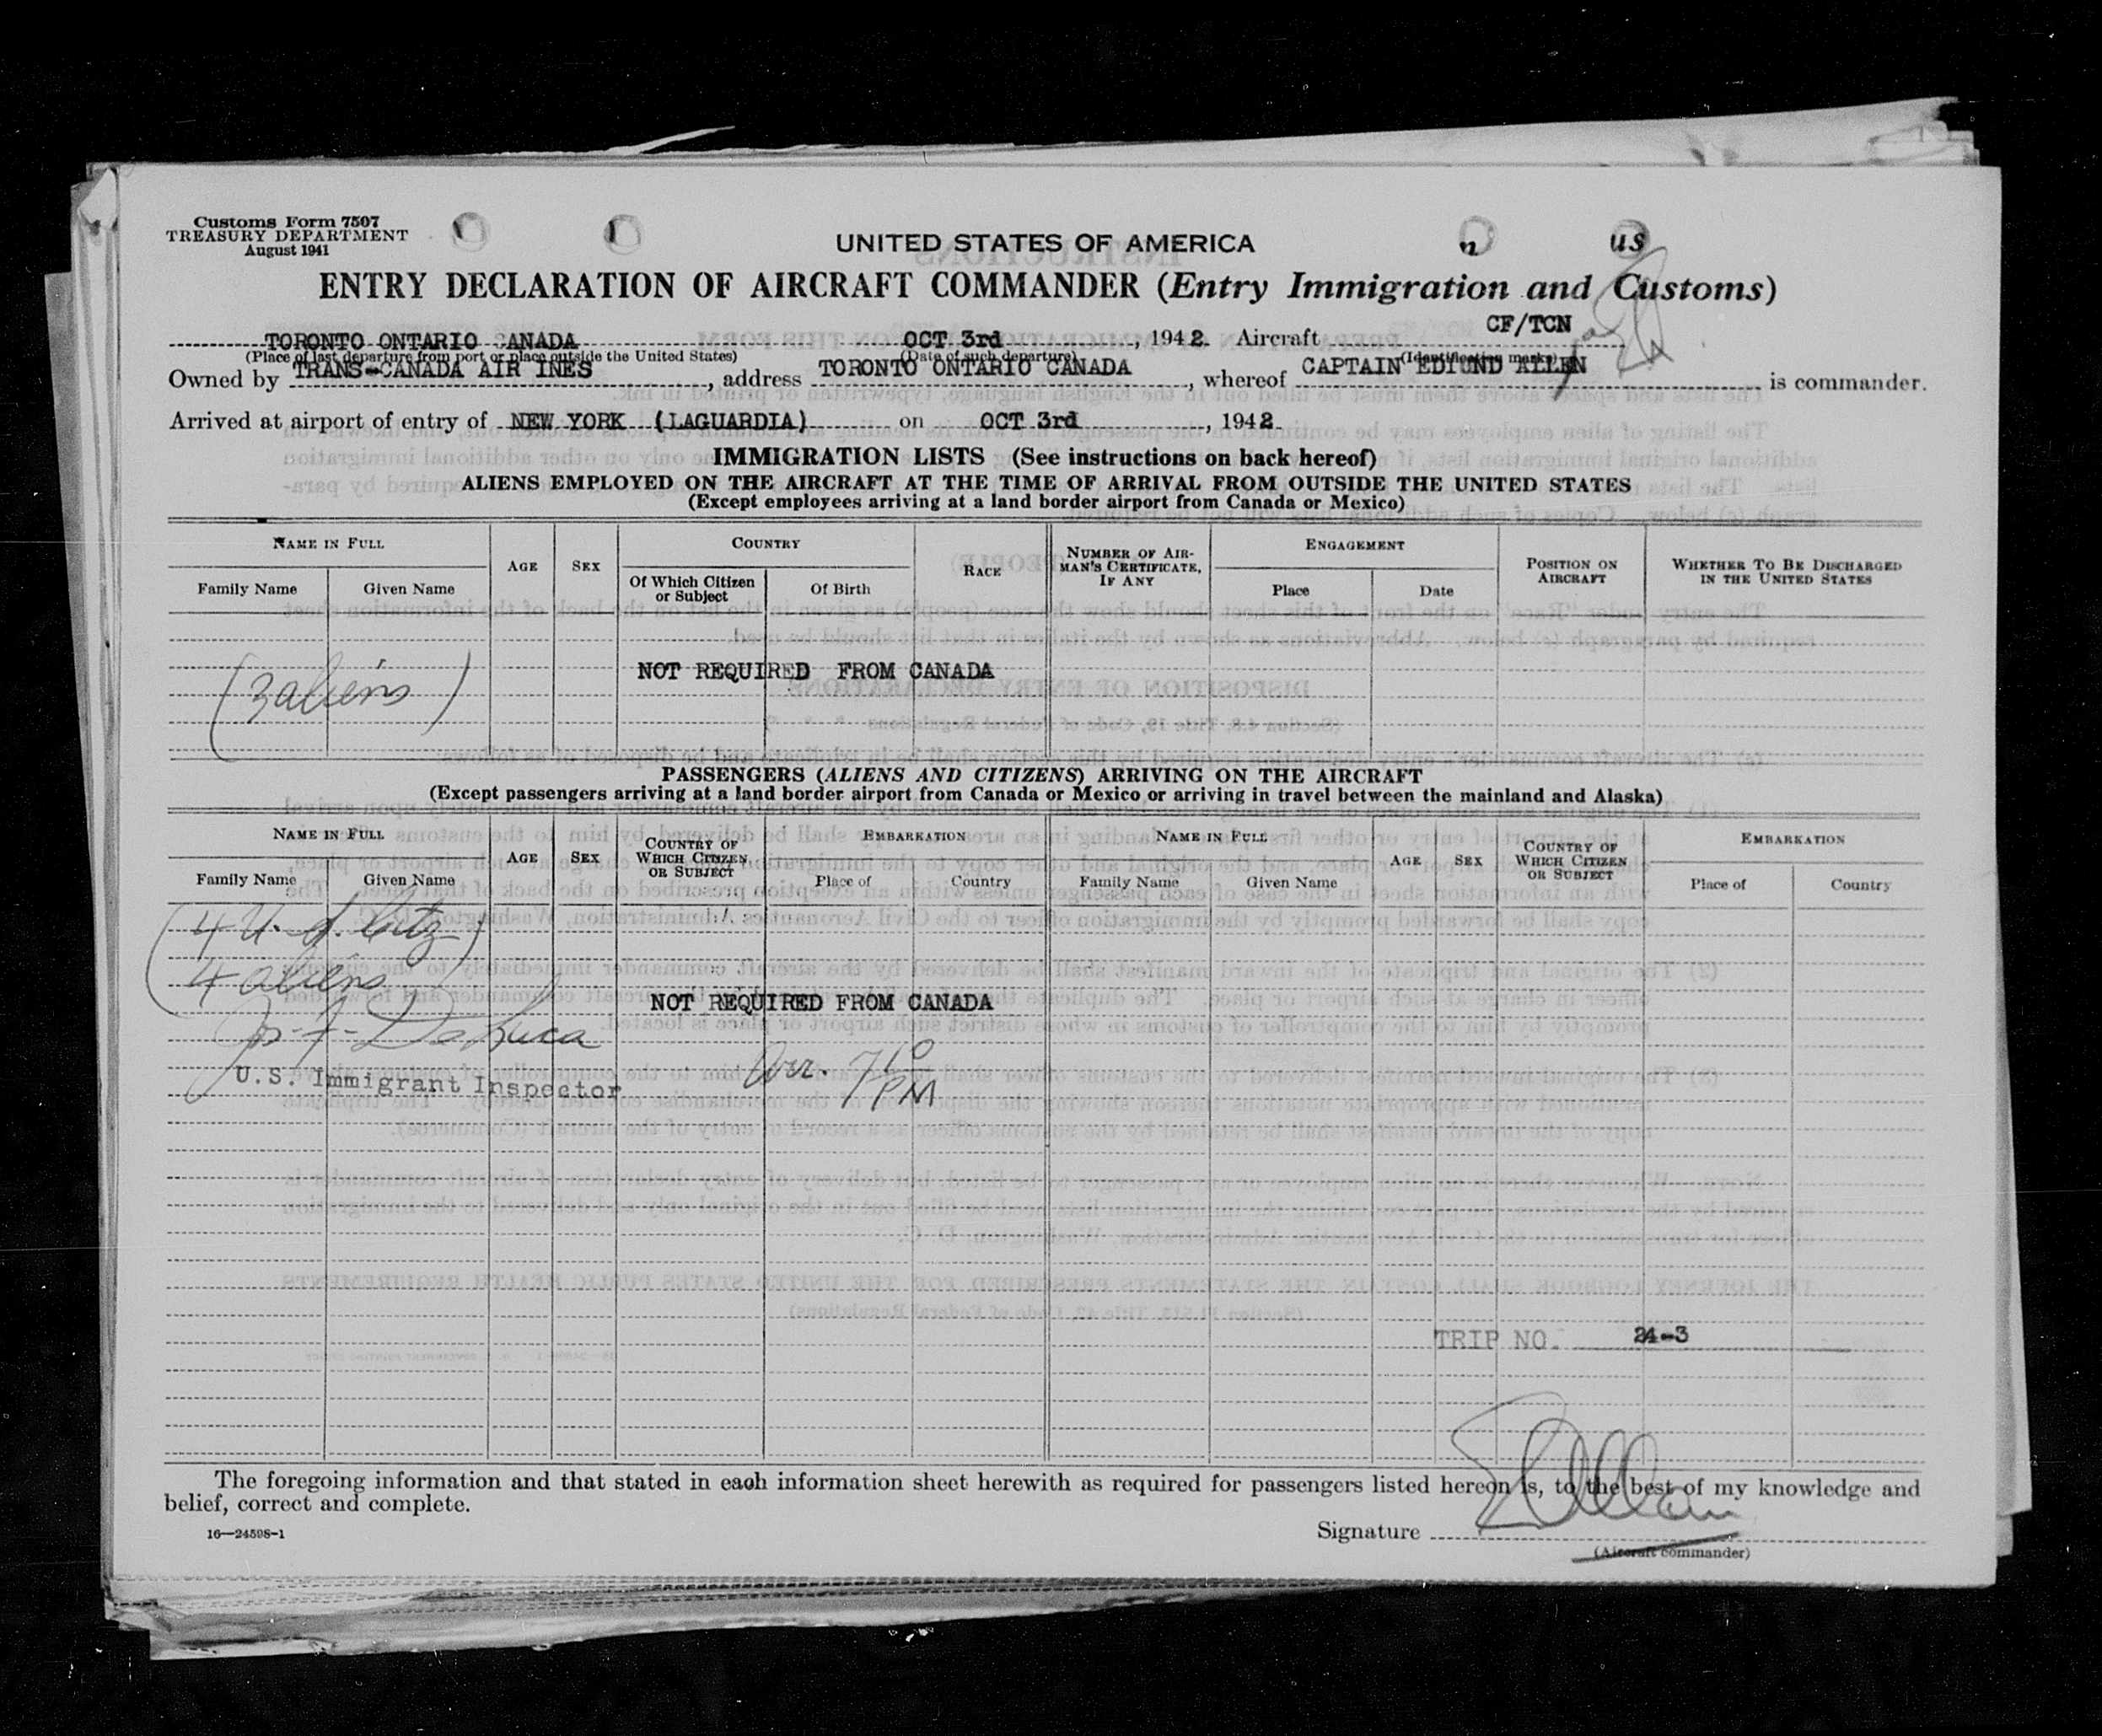 Customs Form 7507
TREASURY DEPARTMENT
August 1941
UNITED STATES OF AMERICA
ENTRY DECLARATION OF AIRCRAFT COMMANDER (Entry Immigration and Customs)
TORONTO ONTARIO CANADA OCT 3rd, 1942. Aircraft CF/TCN
(Place of last departure from port or place outside the United States) (Date of such departure) (Identification marks)
Owned by TRANS-CANADA AIR INES, address TORONTO ONTARIO CANADA, whereof CAPTAIN EDMUND ALLEN is commander.
Arrived at airport of entry of NEW YORK (LAGUARDIA) on OCT 3rd, 1942.
IMMIGRATION LISTS (See instructions on back hereof)
ALIENS EMPLOYED ON THE AIRCRAFT AT THE TIME OF ARRIVAL FROM OUTSIDE THE UNITED STATES
(Except employees arriving at a land border airport from Canada or Mexico)
NAME IN FULL AGE SEX COUNTRY RACE NUMBER OF AIRMAN'S CERTIFICATE, IF ANY ENGAGEMENT POSITION ON AIRCRAFT WHETHER TO BE DISCHARGED IN THE UNITED STATES
Family Name Given Name Of Which Citizen or Subject Of Birth Place Date
NOT REQUIRED FROM CANADA
(3 aliens)
PASSENGERS (ALIENS AND CITIZENS) ARRIVING ON THE AIRCRAFT
(Except passengers arriving at a land border airport from Canada or Mexico or arriving in travel between the mainland and Alaska)
NAME IN FULL AGE SEX COUNTRY OF WHICH CITIZEN OR SUBJECT EMBARKATION NAME IN FULL AGE SEX COUNTRY OF WHICH CITIZEN OR SUBJECT EMBARKATION
Family Name Given Name Place of Country Family Name Given Name Place of Country
(4 U.S. Citz)
4 aliens
NOT REQUIRED FROM CANADA
DeLuca
U.S. Immigrant Inspector
Arr. 7 10 PM
TRIP NO. 24-3
The foregoing information and that stated in each information sheet herewith as required for passengers listed hereon is, to the best of my knowledge and
belief, correct and complete.
16—24598-1
Signature
(Aircraft commander)